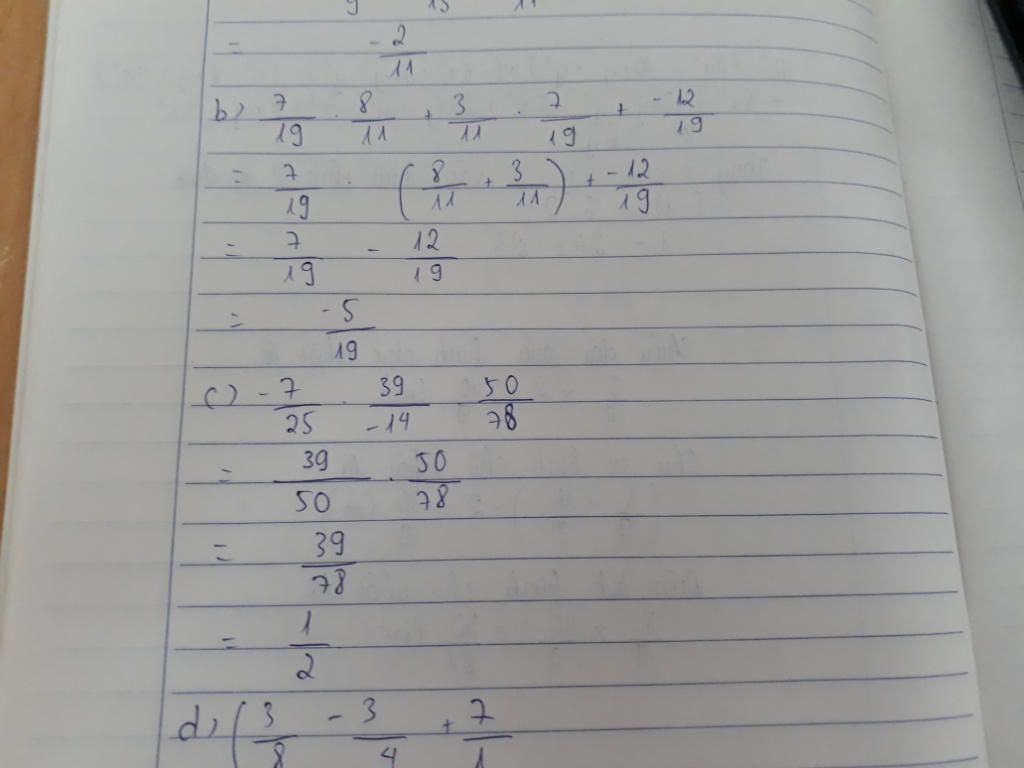 = -2/11
b) 7/19 . 8/11 + 3/11 . 7/19 + -12/19
= 7/19 . (8/11 + 3/11) + -12/19
= 7/19 - 12/19
= -5/19
c) -7/25 . 39/-14 . 50/78
= 39/50 . 50/78
= 39/78
= 1/2
d) (3/8 - 3/4 + 7/1